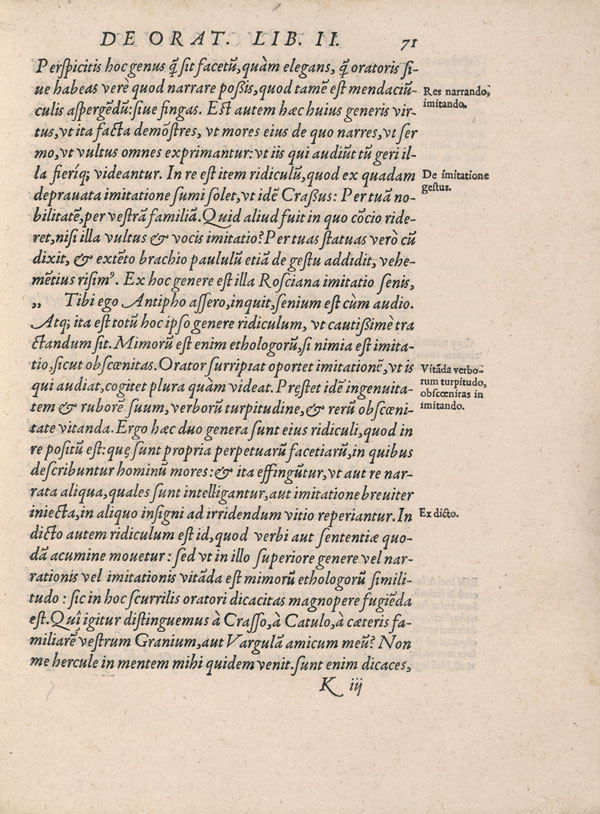 DE ORAT. LIB. II. 71
Perſpicitis hoc genus q̃ ſit facetũ, quàm elegans, q̃ oratoris ſi-
ue habeas verè quod narrare poſsis, quod tamẽ eſt mendaciũ-
culis aſpergẽdũ: ſiue fingas. Eſt autem hæc huius generis vir-
tus, vt ita facta demõſtres, vt mores eius de quo narres, vt ſer
mo, vt vultus omnes exprimantur: vt iis qui audiũt tũ geri il-
la fieriq; videantur. In re eſt item ridiculũ, quod ex quadam
deprauata imitatione ſumi ſolet, vt idẽ Craſſus: Per tuã no-
bilitatẽ, per veſtrã familiã. Quid aliud fuit in quo cõcio ride-
ret, niſi illa vultus & vocis imitatio? Per tuas ſtatuas verò cũ
dixit, & extẽto brachio paululũ etiã de geſtu addidit, vehe-
mẽtius riſimꝰ. Ex hoc genere eſt illa Roſciana imitatio ſenis,
„ Tibi ego Antipho aſſero, inquit, ſenium eſt cùm audio.
Atq; ita eſt totũ hoc ipſo genere ridiculum, vt cautiſsimè tra
ctandum ſit. Mimorũ eſt enim ethologorũ, ſi nimia eſt imita-
tio, ſicut obſcœnitas. Orator ſurripiat oportet imitationẽ, vt is
qui audiat, cogitet plura quàm videat. Pręſtet idẽ ingenuita-
tem & ruborẽ ſuum, verborũ turpitudine, & rerũ obſcœni-
tate vitanda. Ergo hæc duo genera ſunt eius ridiculi, quod in
re poſitũ eſt: quę ſunt propria perpetuarũ facetiarũ, in quibus
deſcribuntur hominũ mores: & ita effingũtur, vt aut re nar-
rata aliqua, quales ſunt intelligantur, aut imitatione breuiter
iniecta, in aliquo inſigni ad irridendum vitio reperiantur. In
dicto autem ridiculum eſt id, quod verbi aut ſententiæ quo-
dã acumine mouetur: ſed vt in illo ſuperiore genere vel nar-
rationis vel imitationis vitãda eſt mimorũ ethologorũ ſimili-
tudo: ſic in hoc ſcurrilis oratori dicacitas magnopere fugiẽda
eſt. Quî igitur diſtinguemus à Craſſo, à Catulo, à cæteris fa-
miliarẽ veſtrum Granium, aut Vargulã amicum meũ? Non
me hercule in mentem mihi quidem venit. ſunt enim dicaces,
K iij
Res narrando,
imitando.
De imitatione
geſtus.
Vitãda verbo-
rum turpitudo,
obſcœnitas in
imitando.
Ex dicto.